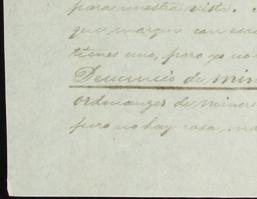 para nuestra vista.
que margen con esas
tienes uno, pero yo no
Denuncio de min
ordenanzas de miner
pero no hay casa, ma